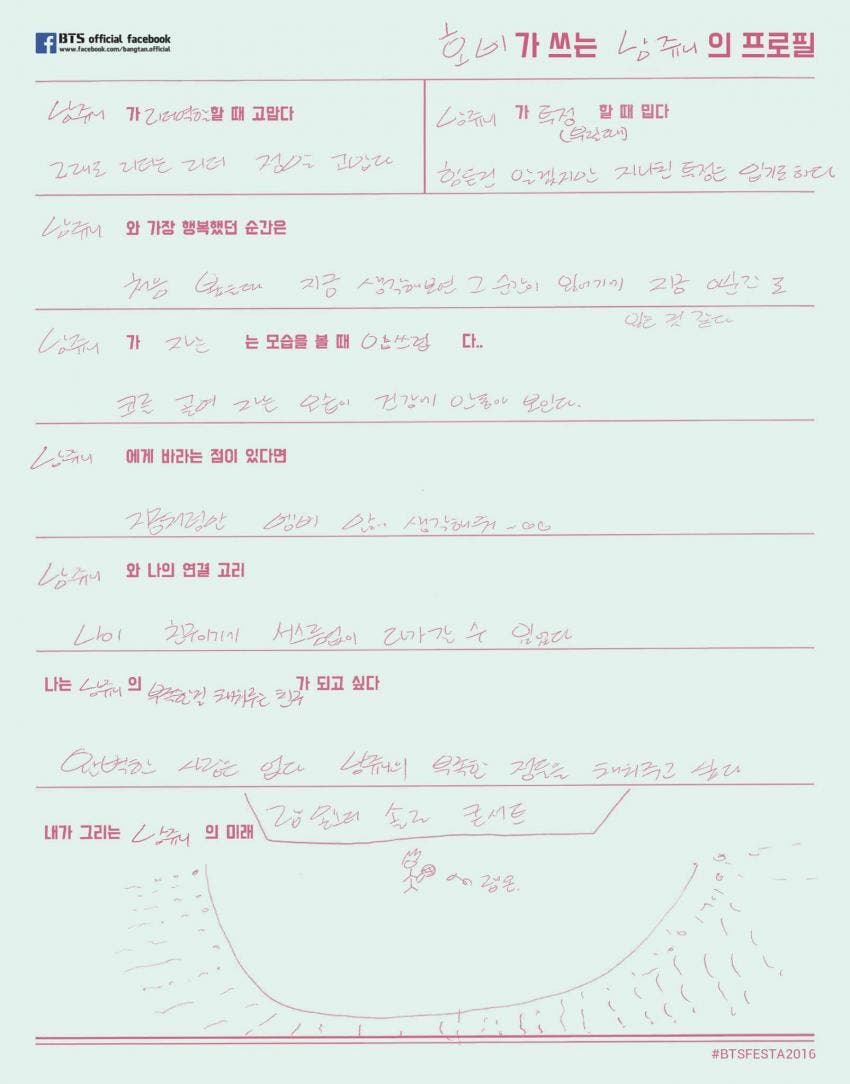 BTS official facebook
www.facebook.com/bangtan.official
호비가 쓰는 남쥬니의 프로필
남쥬니가 리더역할할 때 고맙다
그대로 리더는 리더 점이 고맙다
남쥬니가 투정 할 때 밉다
(부릴때)
힘든건 알겠지만 지나친 투정은 얄밉기도 하다
남쥬니와 가장 행복했던 순간은
처음 봤는데 지금 생각해보면 그 순간이 있었기에 지금 이순간도
있는 것 같다
남쥬니가 자는 는 모습을 볼 때 안쓰럽다..
코를 골며 자는 모습이 건강이 안좋아 보인다.
남쥬니에게 바라는 점이 있다면
지금처럼만 생각해줘
남쥬니와 나의 연결 고리
나이 친구이기에 서스름없이 다가갈 수 있었다
나는 남쥬니의 부족한걸 채워주는 친구가 되고 싶다
완벽한 사람은 없다 남쥬니의 부족한 점들을 채워주고 싶다
내가 그리는 남쥬니의 미래
랩몬스터 솔로 콘서트
랩몬.
#BTSFESTA2016